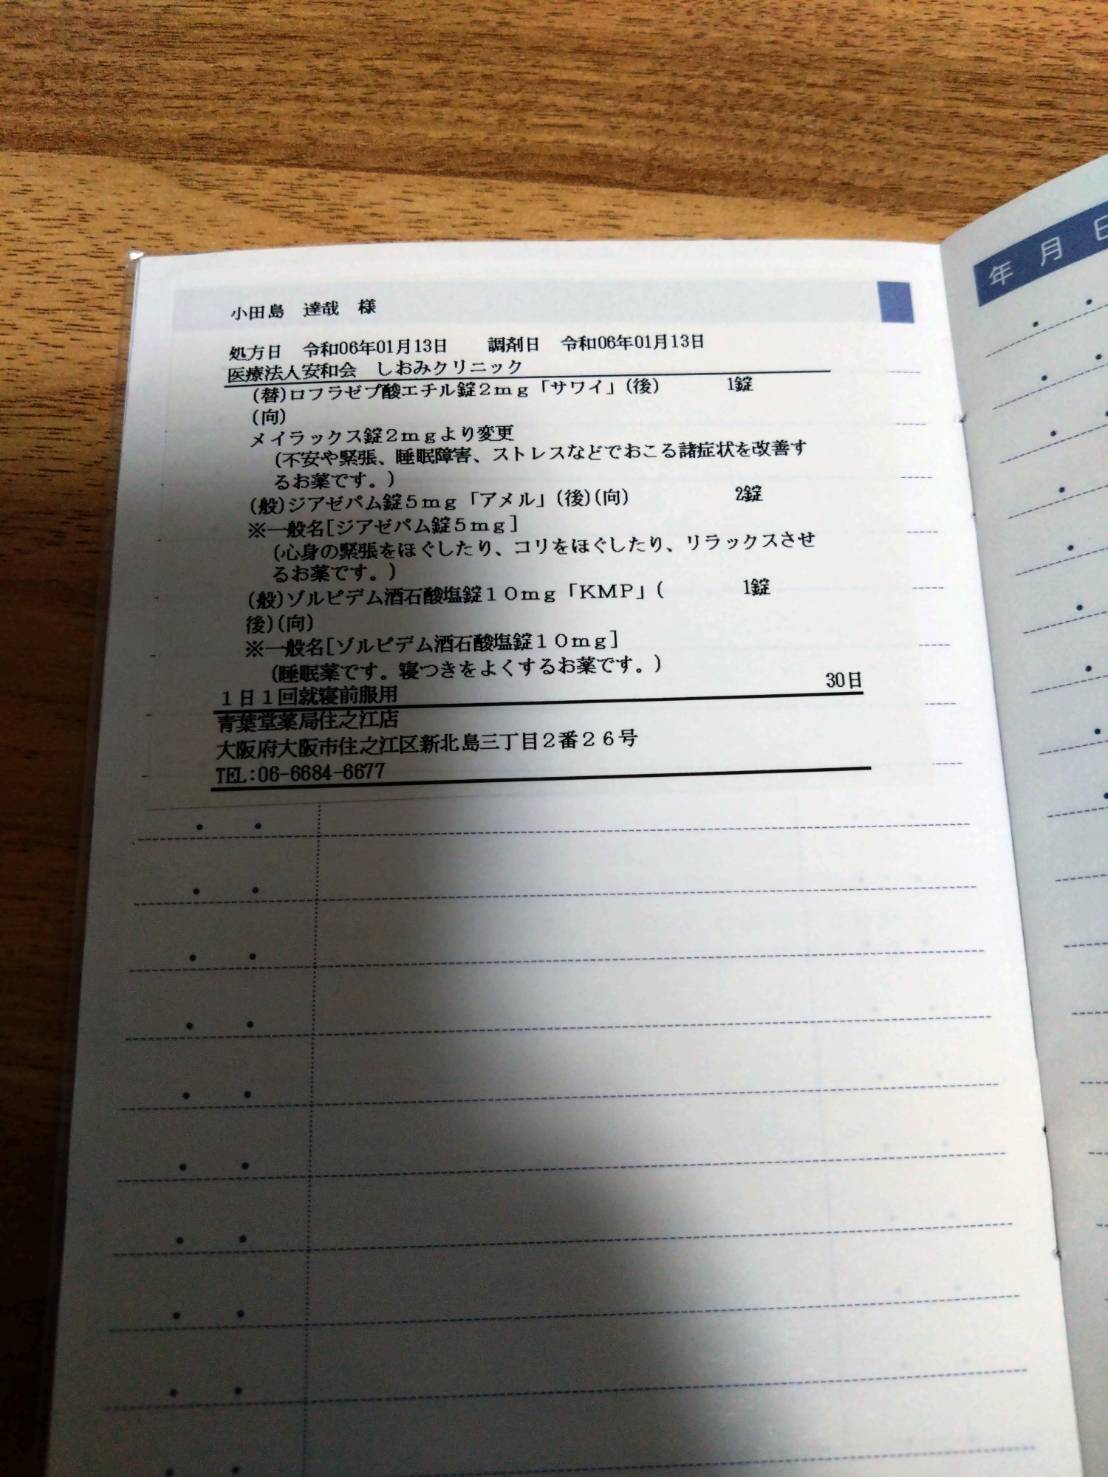 小田島　達哉　様
処方日　令和06年01月13日　　調剤日　令和06年01月13日
医療法人安和会　しおみクリニック
(替)ロフラゼプ酸エチル錠２ｍｇ「サワイ」(後)　1錠
(向)
メイラックス錠２ｍｇより変更
(不安や緊張、睡眠障害、ストレスなどでおこる諸症状を改善す
るお薬です。)
(般)ジアゼパム錠５ｍｇ「アメル」(後)(向)　2錠
※一般名[ジアゼパム錠５ｍｇ]
(心身の緊張をほぐしたり、コリをほぐしたり、リラックスさせ
るお薬です。)
(般)ゾルピデム酒石酸塩錠１０ｍｇ「ＫＭＰ」(　1錠
後)(向)
※一般名[ゾルピデム酒石酸塩錠１０ｍｇ]
(睡眠薬です。寝つきをよくするお薬です。)
１日１回就寝前服用　30日
青葉堂薬局住之江店
大阪府大阪市住之江区新北島三丁目２番２６号
TEL:06-6684-6677
年　月　日